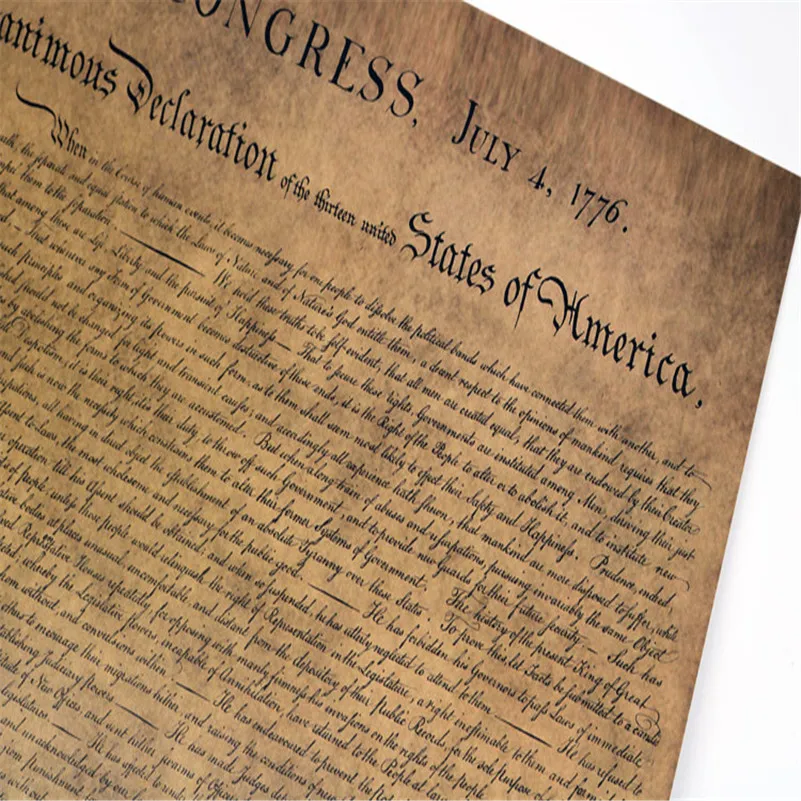 CONGRESS, JULY 4, 1776.
animous Declaration of the thirteen united States of America,
When in the Course of human events, it becomes necessary for one people to dissolve the political bands which have connected them with another, and to
the separate and equal station to which the Laws of Nature and of Nature's God entitle them, a decent respect to the opinions of mankind requires that they
them to the separation. We hold these truths to be self-evident, that all men are created equal, that they are endowed by their Creator
that among these are Life, Liberty and the pursuit of Happiness.— That to secure these rights, Governments are instituted among Men, deriving their just
— That whenever any Form of Government becomes destructive of these ends, it is the Right of the People to alter or to abolish it, and to institute new
principles and organizing its powers in such form, as to them shall seem most likely to effect their Safety and Happiness. Prudence, indeed,
should not be changed for light and transient causes; and accordingly all experience hath shewn, that mankind are more disposed to suffer, while
by abolishing the forms to which they are accustomed. But when a long train of abuses and usurpations, pursuing invariably the same Object
Despotism, it is their right, it is their duty, to throw off such Government, and to provide new Guards for their future security.— Such has
and such is now the necessity which constrains them to alter their former Systems of Government. The history of the present King of Great
all having in direct object the establishment of an absolute Tyranny over these States. To prove this, let Facts be submitted to a candid
to Laws, the most wholesome and necessary for the public good. He has forbidden his Governors to pass Laws of immediate
operation till his Assent should be obtained; and when so suspended, he has utterly neglected to attend to them He has refused to
of people, unless those people would relinquish the right of Representation in the Legislature, a right inestimable to them and
bodies at places unusual, uncomfortable, and distant from the depository of their public Records, for the sole purpose of
Representative Houses repeatedly, for opposing with manly firmness his invasions on the rights of the people
whereby the Legislative powers, incapable of Annihilation, have returned to the People at
without, and convulsions within He has endeavoured to prevent the
to encourage their migrations hither, and raising the conditions of new
Judiciary powers He has made Judges
of New Offices, and sent hither swarms of
He has
and unacknowledged by our
punishment